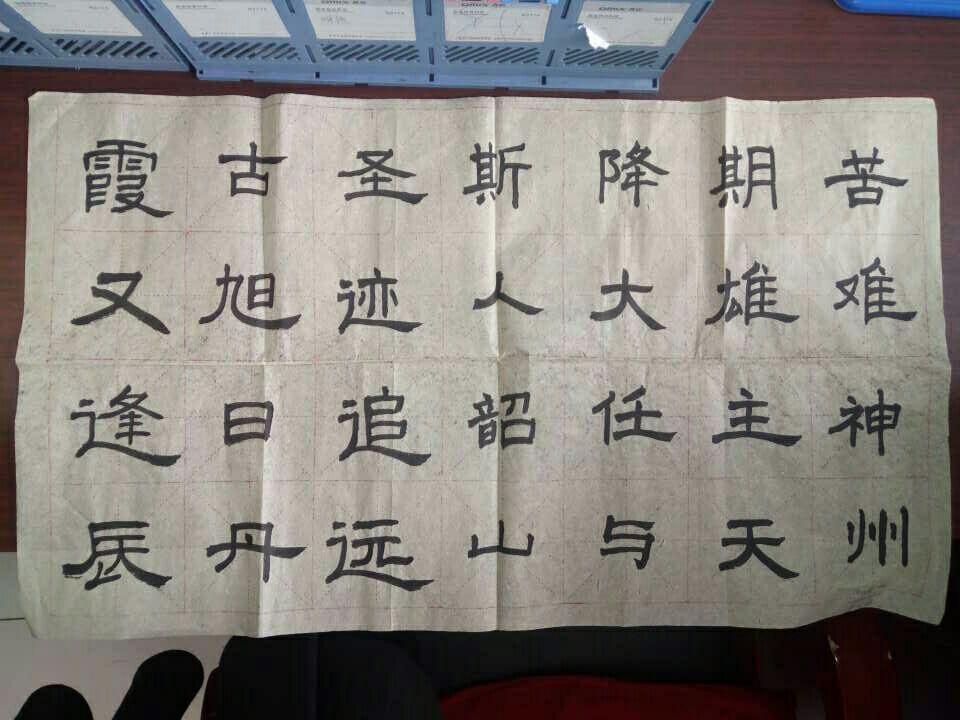 苦难神州
期雄主天
降大任与
斯人韶山
圣迹追远
古旭日丹
霞又逢辰